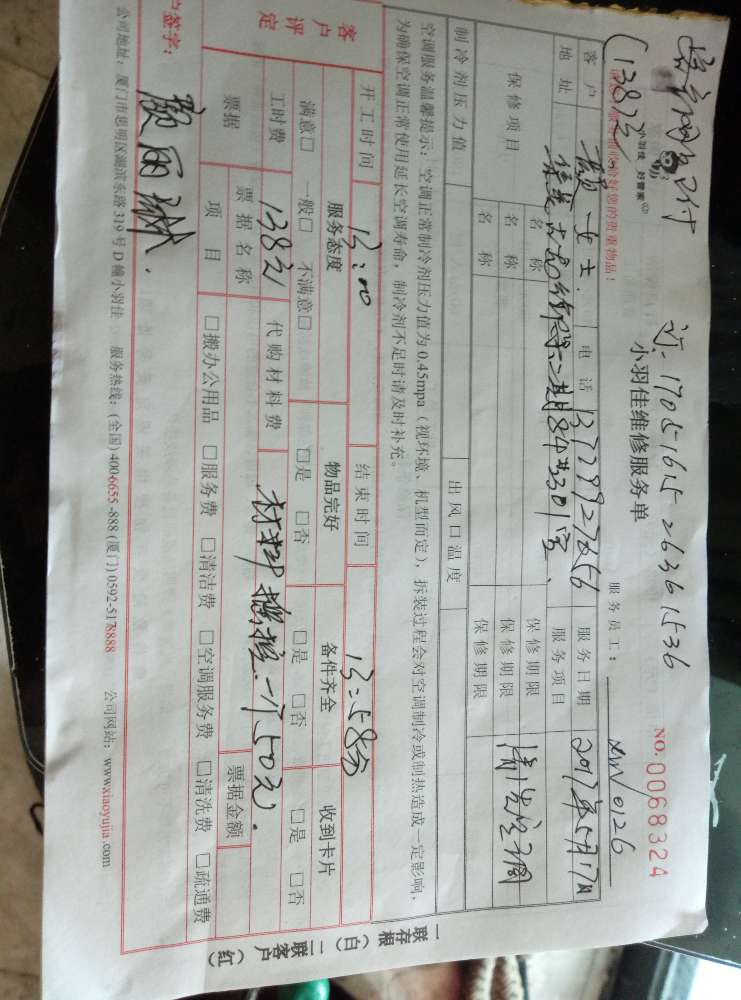 订：1705-1615-26361536
(138元
小羽佳 好管家
小羽佳维修服务单
服务员工： XW0126
NO. 0068324
客户 颜女士 电话 13779927656 服务日期 2017年5月17日
地址 二期84#301室 服务项目 清洗空调
保修项目 名称 保修期限
名称 保修期限
名称 保修期限
制冷剂压力值 出风口温度
空调服务温馨提示：空调正常制冷剂压力值为0.45mpa（视环境、机型而定），拆装过程会对空调制冷或制热造成一定影响，
为确保空调正常使用延长空调寿命，制冷剂不足时请及时补充。
开工时间 13:00 结束时间 13:58分
客户评定 服务态度 物品完好 备件齐全 收到卡片
满意□ 一般□ 不满意□ □是 □否 □是 □否 □是 □否
工时费 138元 代购材料费 一个50元.
票据 票据名称 票据金额
项目 □搬办公用品 □服务费 □清洁费 □空调服务费 □清洗费 □疏通费
户签字： 颜丽
公司地址：厦门市思明区湖滨东路319号D幢小羽佳 服务热线：(全国) 400-6655-888 (厦门) 0592-5178888 公司网站：www.xiaoyujia.com
一联存根（白）二联客户（红）